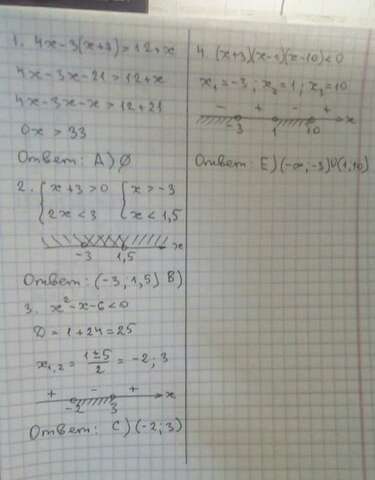 1. 4x-3(x+7)>12+x
4x-3x-21>12+x
4x-3x-x>12+21
0x>33
Ответ: A) ∅
2. { x+3>0 { x>-3
2x<3 x<1,5
-3 1,5 x
Ответ: (-3; 1,5) B)
3. x²-x-6<0
D=1+24=25
x₁,₂ = (1±5)/2 = -2; 3
+ - + x
-2 3
Ответ: C) (-2; 3)
4. (x+3)(x-1)(x-10)<0
x₁=-3; x₂=1; x₃=10
- + - +
-3 1 10 x
Ответ: E) (-∞,-3)∪(1,10)